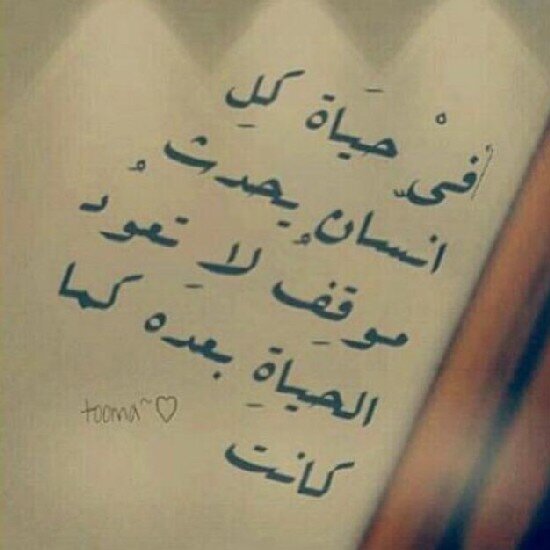 فيْ حيَاة كلِ
انسانٍ يحدثُ
موقفِ لاِ تعوُد
الحياةِ بعده كما
كانت
tooma~♡